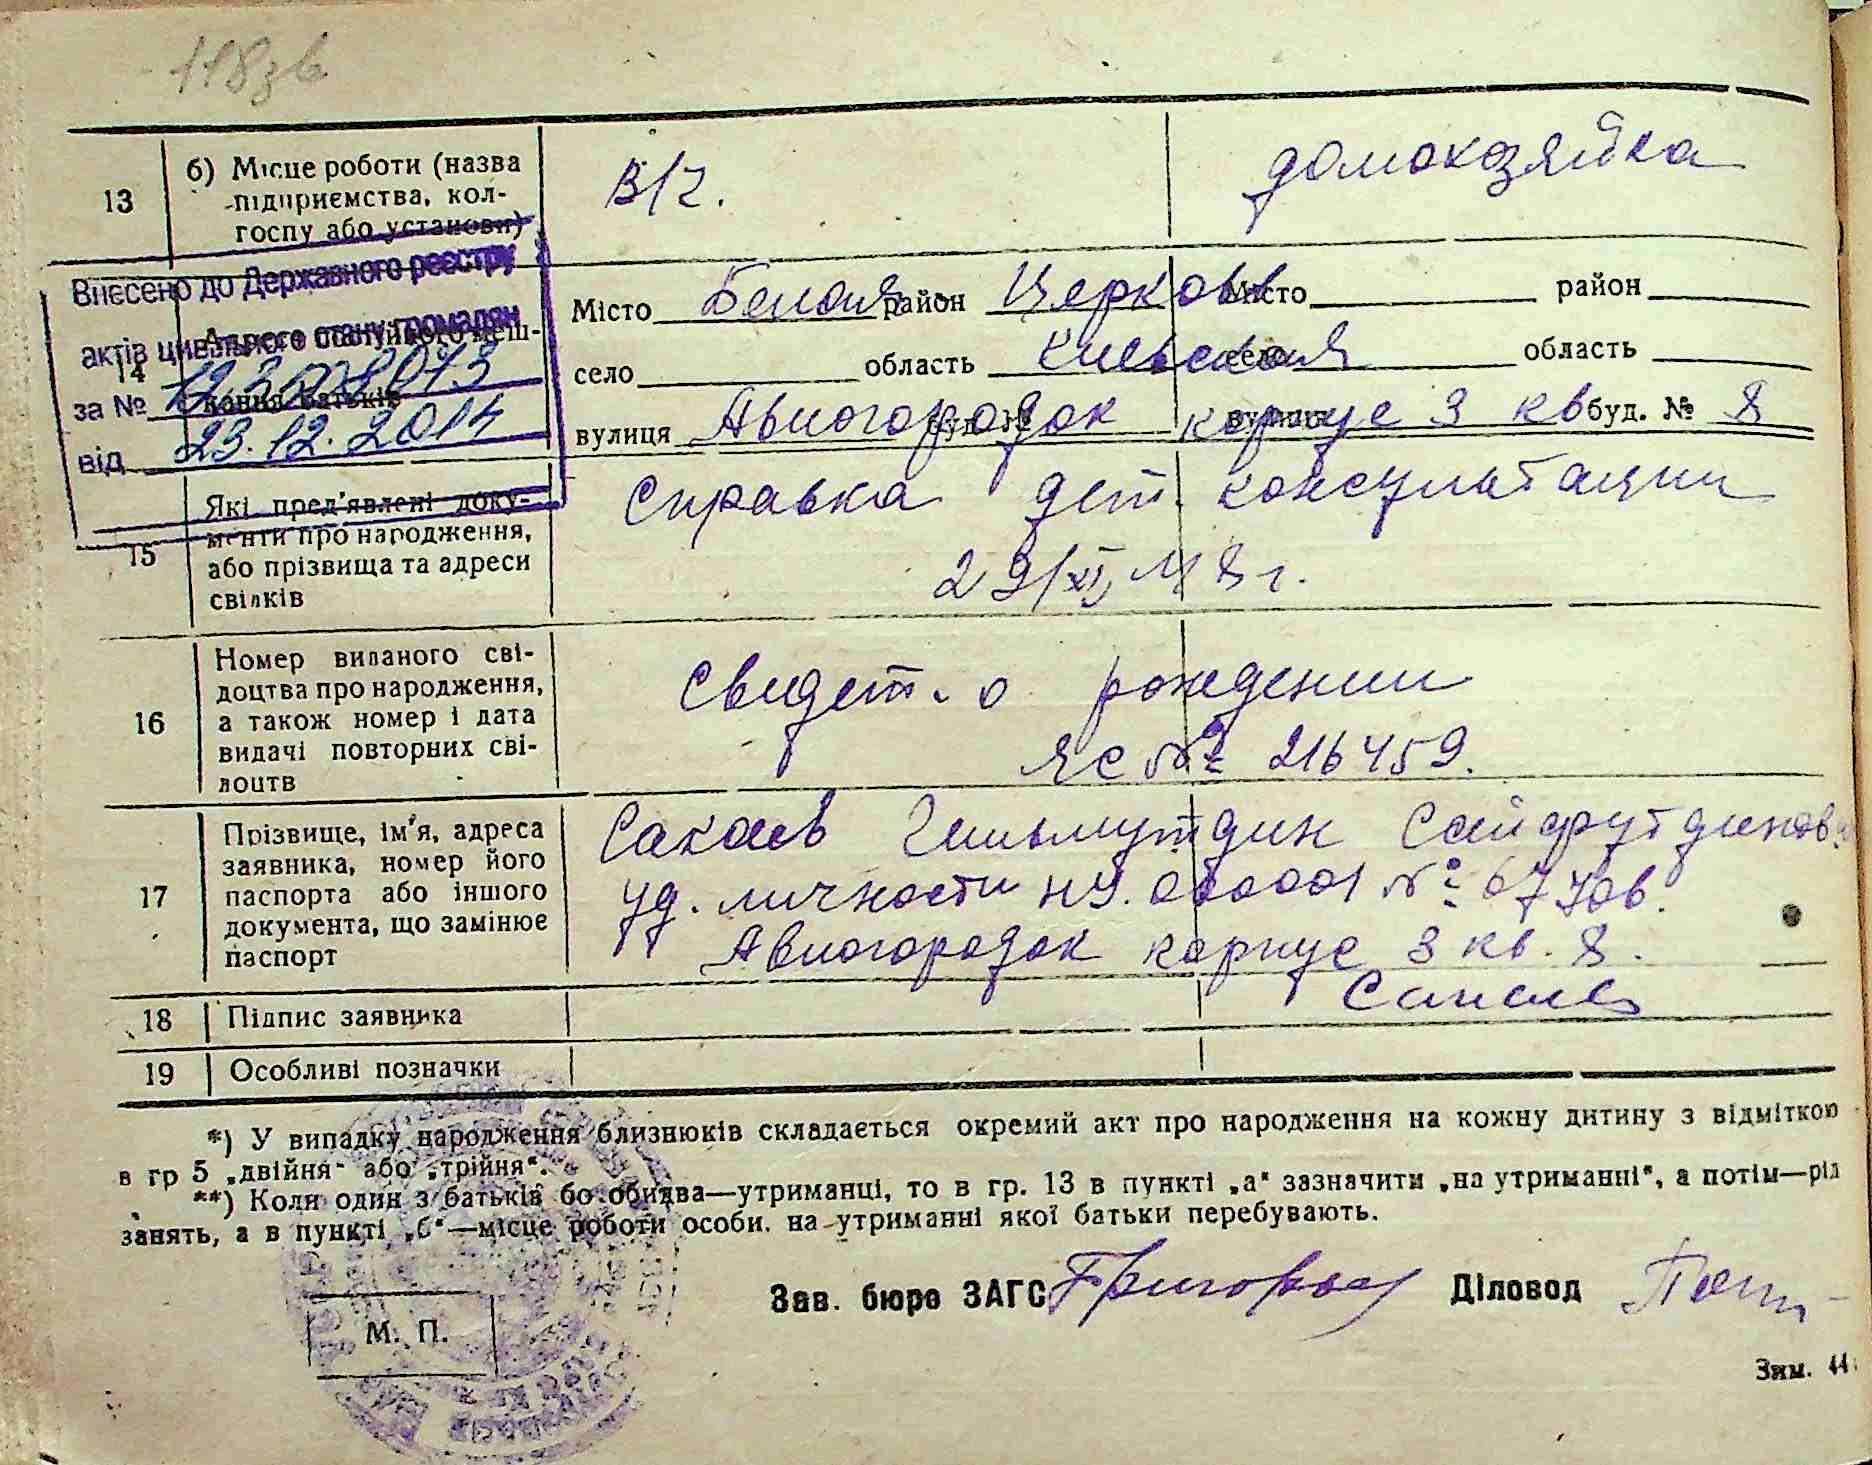 118зв
13
б) Місце роботи (назва
підприємства, кол-
госпу або установи)
В/г.
домохозяйка
Внесено до Державного реєстру
актів цивільного стану громадян
за №
від 23.12.2014
14
Адреса постійного меш-
кання батьків
Місто Белая район Церковь Місто район
село область Киевская село область
вулиця Авиогородок корпус 3 кв буд. № 8
15
Які пред'явлені доку-
менти про народження,
або прізвища та адреси
свідків
Справка дет. консультации
29/XI, 48 г.
16
Номер виданого сві-
доцтва про народження,
а також номер і дата
видачі повторних сві-
доцтв
Свидет. о рождении
ЯС № 216459.
17
Прізвище, ім'я, адреса
заявника, номер його
паспорта або іншого
документа, що замінює
паспорт
Сакаев Гильмутдин Сайфутдинов
уд. личности №
Авиогородок корпус 3 кв. 8.
18 Підпис заявника
Сакаев
19 Особливі позначки
*) У випадку народження близнюків складається окремий акт про народження на кожну дитину з відміткою
в гр 5 „двійня" або „трійня".
**) Коли один з батьків бо обидва—утриманці, то в гр. 13 в пункті „а" зазначити „на утриманні", а потім—рід
занять, а в пункті „б"—місце роботи особи. на утриманні якої батьки перебувають.
Зав. бюро ЗАГС Діловод
М. П.
Зам. 44